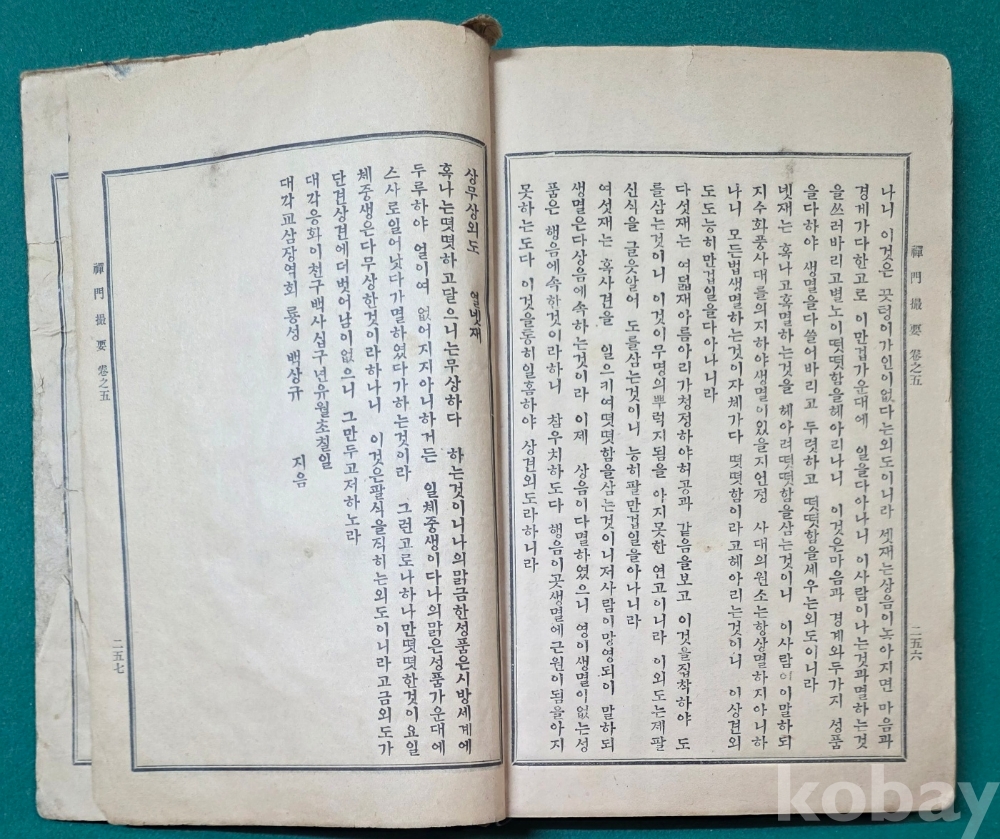 禪門撮要 卷之五
二五六
나니 이것은 끗텅이가인이없다는외도이니라 셋재는상음이녹아지면 마음과
경게가다한고로 이만겁가운대에 일을다아나니 이사람이나는것과멸하는것
을쓰러바리고별노이떳떳함을헤아리나니 이것은마음과 경계와두가지 성품
을다하야 생멸을다쓸어바리고 두렷하고 떳떳함을세우는외도이니라
넷재는 혹나고혹멸하는것을 헤아려떳떳함을삼는것이니 이사람이말하되
지수화풍사대를의지하야생멸이있을지언정 사대의원소는항상멸하지아니하
나니 모든법생멸하는것이자체가다 떳떳함이라고헤아리는것이니 이상견외
도도능히만겁일을다아나니라
다섯재는 여덟재아름아리가청정하야허공과 같음을보고 이것을집착하야 도
를삼는것이니 이것이무명의뿌럭지됨을 아지못한 연고이니라 이외도는제팔
신식을 글읏알어 도를삼는것이니 능히팔만겁일을아나니라
여섯재는 혹사견을 일으키여떳떳함을삼는것이니저사람이망영되이 말하되
생멸은다상음에속하는것이라 이제 상음이다멸하였으니 영이생멸이없는성
품은 행음에속한것이라하니 참우치하도다 행음이곳생멸에근원이됨을아지
못하는도다 이것을통히일홈하야 상견외도라하니라
상무상외도 열넷재
혹나는떳떳하고달으니는무상하다 하는것이니나의맑금한성품은시방세계에
두루하야 얼이여 없어지지아니하거든 일체중생이다나의맑은성품가운대에
스사로일어낫다가멸하였다가하는것이라 그런고로나하나만떳떳한것이요일
체중생은다무상한것이라하나니 이것은팔식을직히는외도이니라고금외도가
단견상견에더벗어남이없으니 그만두고저하노라
대각응화이천구백사십구년유월초칠일
대각교삼장역회 룡성 백상규 지음
禪門撮要 卷之五
二五七
kobay